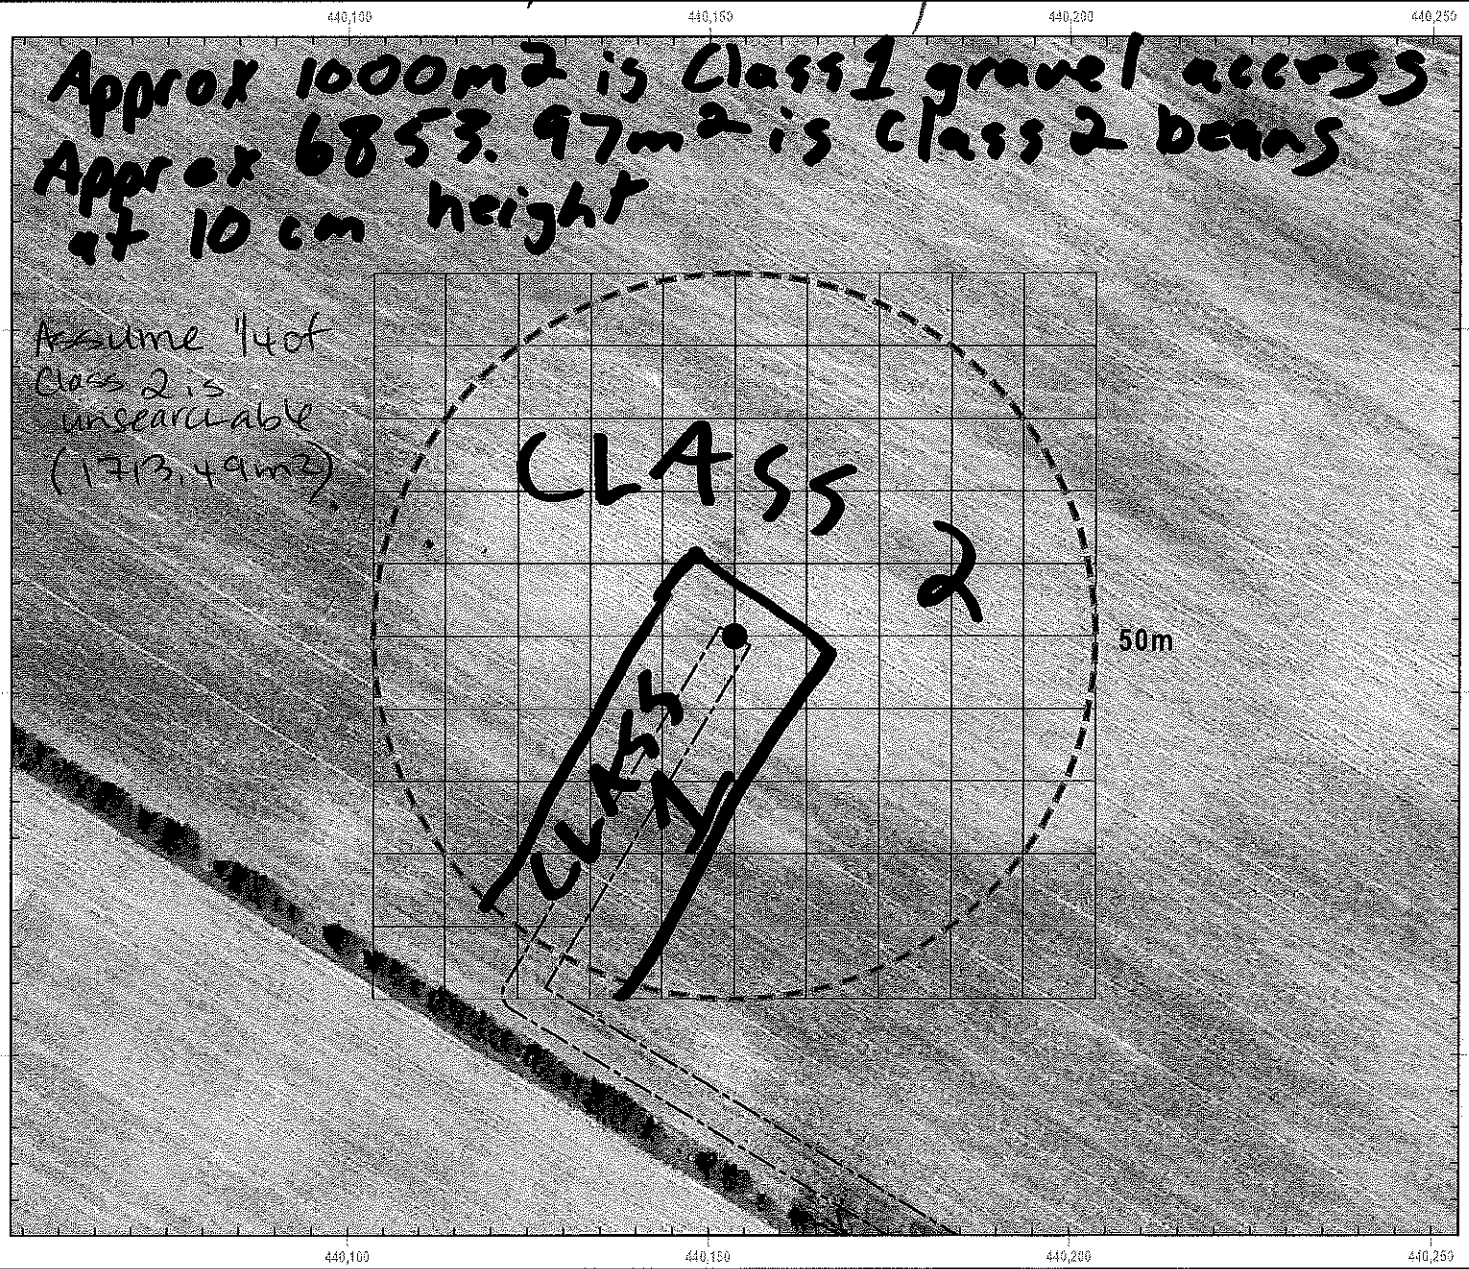 440,100 440,150 440,200 440,250
Approx 1000m2 is Class1 gravel access
Approx 6853.97m2 is Class 2 beans
at 10 cm height
Assume 1/4 of
Class 2 is
unsearchable
(1713.49m2)
CLASS
2
50m
CLASS
1
440,100 440,150 440,200 440,250